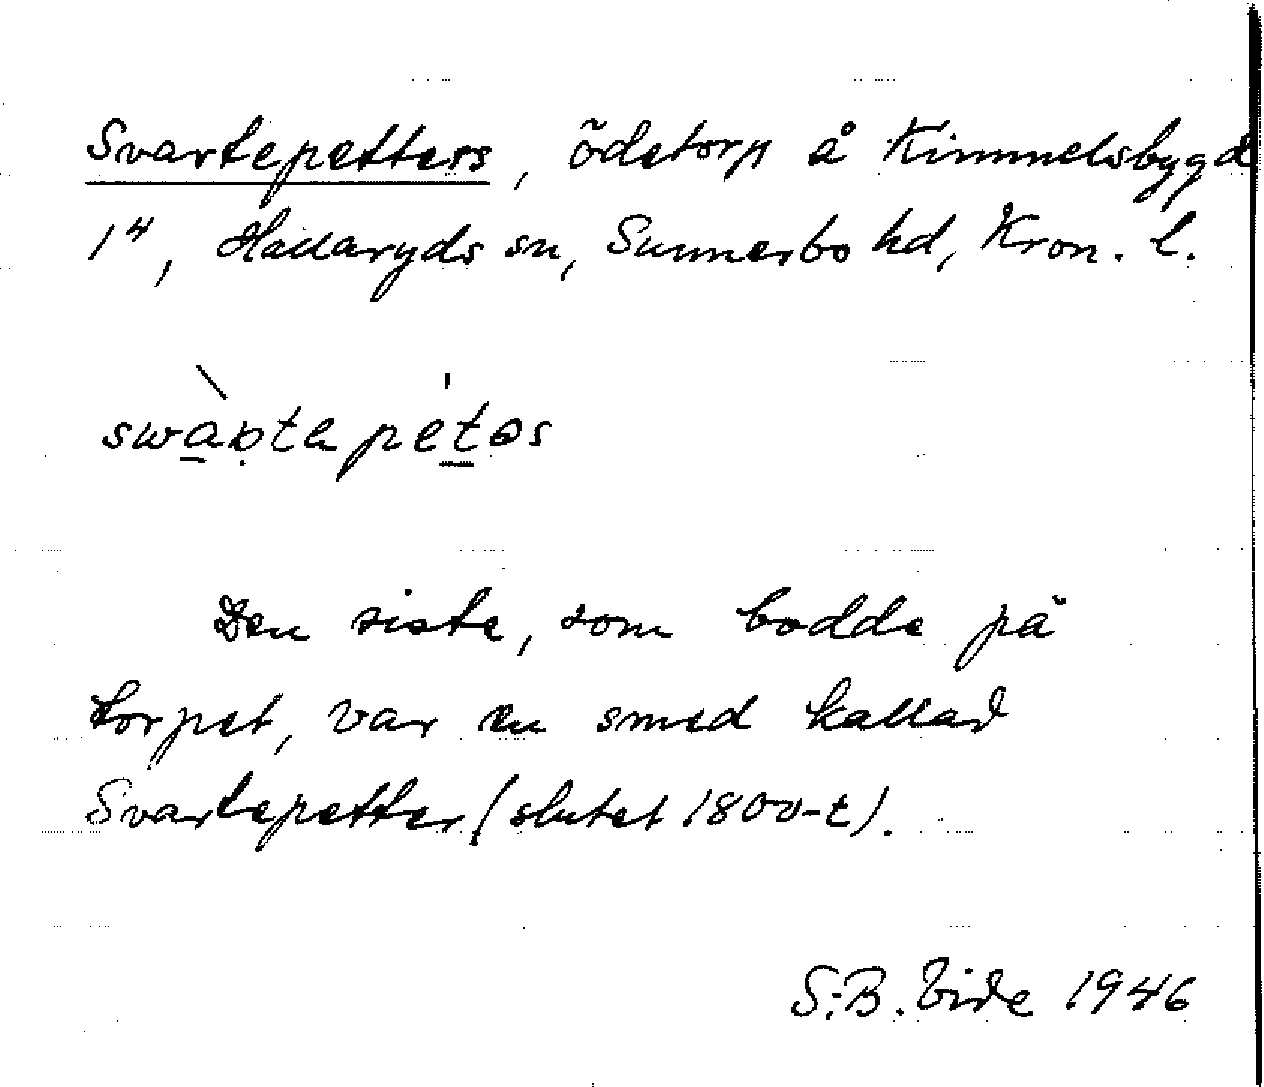 Svartepetters, ödetorp å Kimmelsbygd
1⁴, Hallaryds sn, Sunnerbo hd, Kron. l.
Den siste, som bodde på
torpet, var en smed kallad
Svartepetter (slutet 1800-t).
S.B. Vide 1946